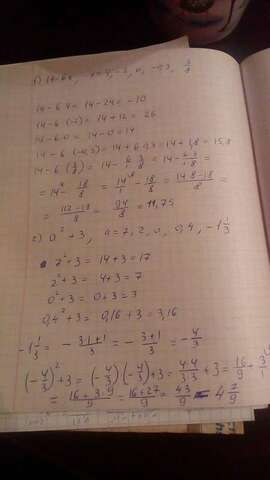 14-6·4 = 14-24 = -10
14-6·(-2) = 14+12 = 26
14-6·0 = 14-0 = 14
14-6·(-0,3) = 14+6·0,3 = 14+1,8 = 15,8
14-6·(3/8) = 14-6·3/8 = 14-18/8 =
= 112-18/8 = 94/8 = 11,75
2) a²+3, a=7, 2, 0, 0,4, -1 1/3
7²+3 = 14+3 = 17
2²+3 = 4+3 = 7
0²+3 = 0+3 = 3
0,4²+3 = 0,16+3 = 3,16
-1 1/3 = -3·1+1/3 = -3+1/3 = -4/3
(-4/3)²+3 = (-4/3)·(-4/3)+3 = 4·4/3·3+3 = 16/9+3/1
= 16+3·9/9 = 16+27/9 = 43/9 = 4 7/9